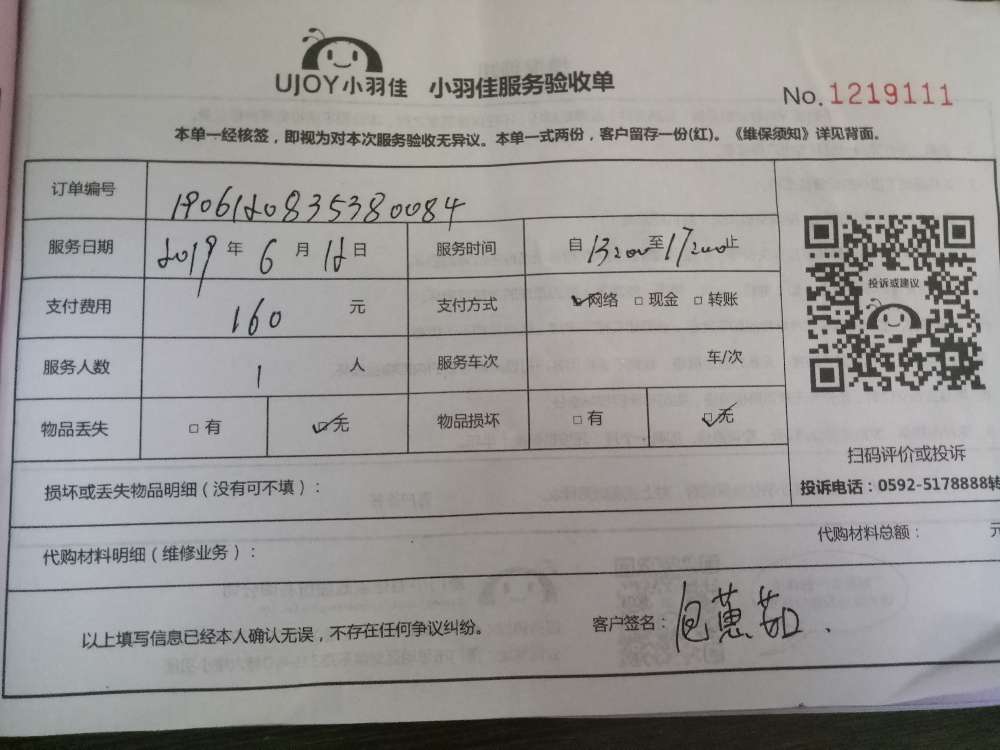 UJOY小羽佳 小羽佳服务验收单
No. 1219111
本单一经核签，即视为对本次服务验收无异议。本单一式两份，客户留存一份(红)。《维保须知》详见背面。
订单编号 1906120835380084
服务日期 2019年6月12日 服务时间 自13:00至17:00止
支付费用 160元 支付方式 网络 现金 转账
投诉或建议
服务人数 1人 服务车次 车/次
物品丢失 有 无 物品损坏 有 无
扫码评价或投诉
损坏或丢失物品明细（没有可不填）：
投诉电话：0592-5178888转
代购材料明细（维修业务）：
代购材料总额： 元
以上填写信息已经本人确认无误，不存在任何争议纠纷。
客户签名：